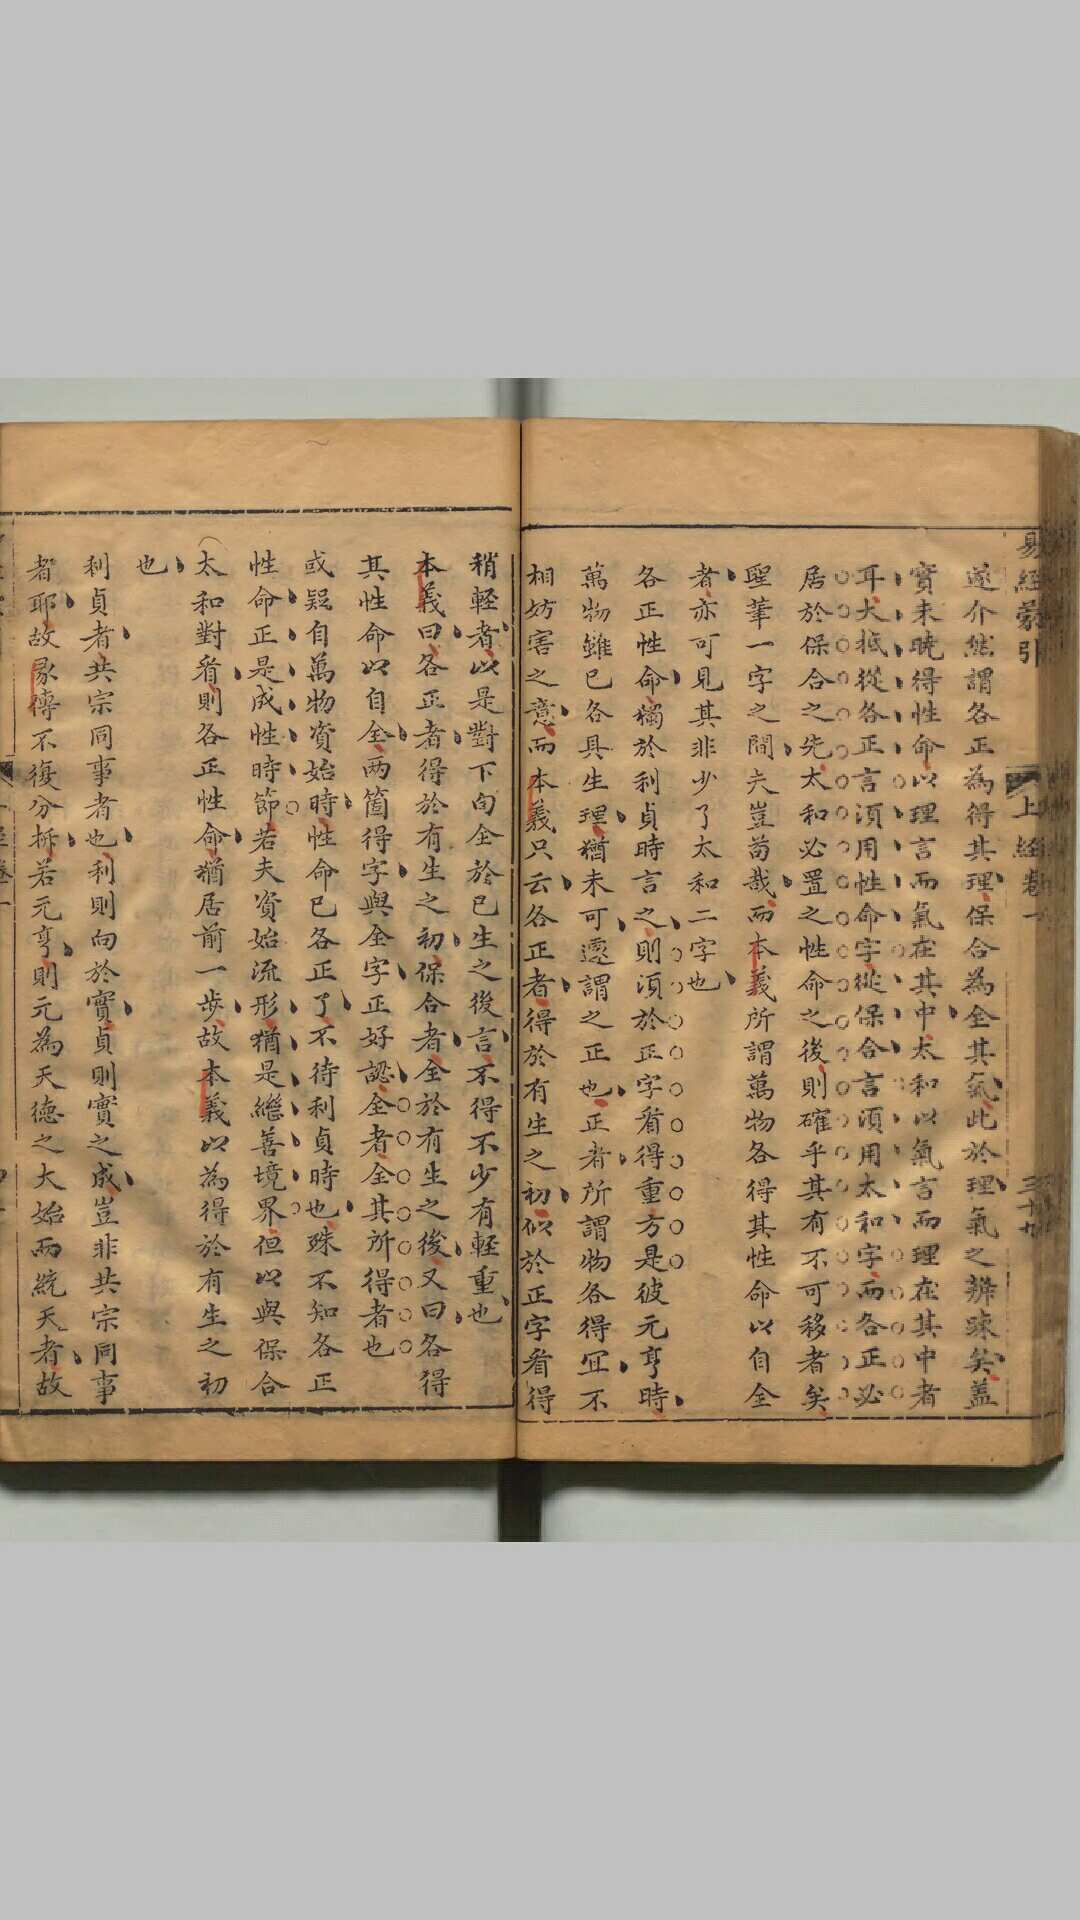 易經蒙引 上經卷一
遂介然謂各正為得其理保合為全其氣此於理氣之辨疎矣蓋
實未曉得性命以理言而氣在其中太和以氣言而理在其中者
耳大抵從各正言須用性命字從保合言須用太和字而各正必
居於保合之先太和必置之性命之後則確乎其有不可移者矣
聖筆一字之間夫豈茍哉而本義所謂萬物各得其性命以自全
者亦可見其非少了太和二字也
各正性命獨於利貞時言之則須於正字看得重方是彼元亨時
萬物雖已各具生理猶未可遽謂之正也正者所謂物各得冝不
相妨害之意而本義只云各正者得於有生之初似於正字看得
稍輕者以是對下句全於已生之後言不得不少有輕重也
本義曰各正者得於有生之初保合者全於有生之後又曰各得
其性命以自全两箇得字與全字正好認全者全其所得者也
或疑自萬物資始時性命已各正了不待利貞時也殊不知各正
性命正是成性時節若夫資始流形猶是繼善境界但以與保合
太和對看則各正性命猶居前一步故本義以為得於有生之初
也
利貞者共宗同事者也利則向於實貞則實之成豈非共宗同事
者耶故彖傳不復分拆若元亨則元為天德之大始而統天者故